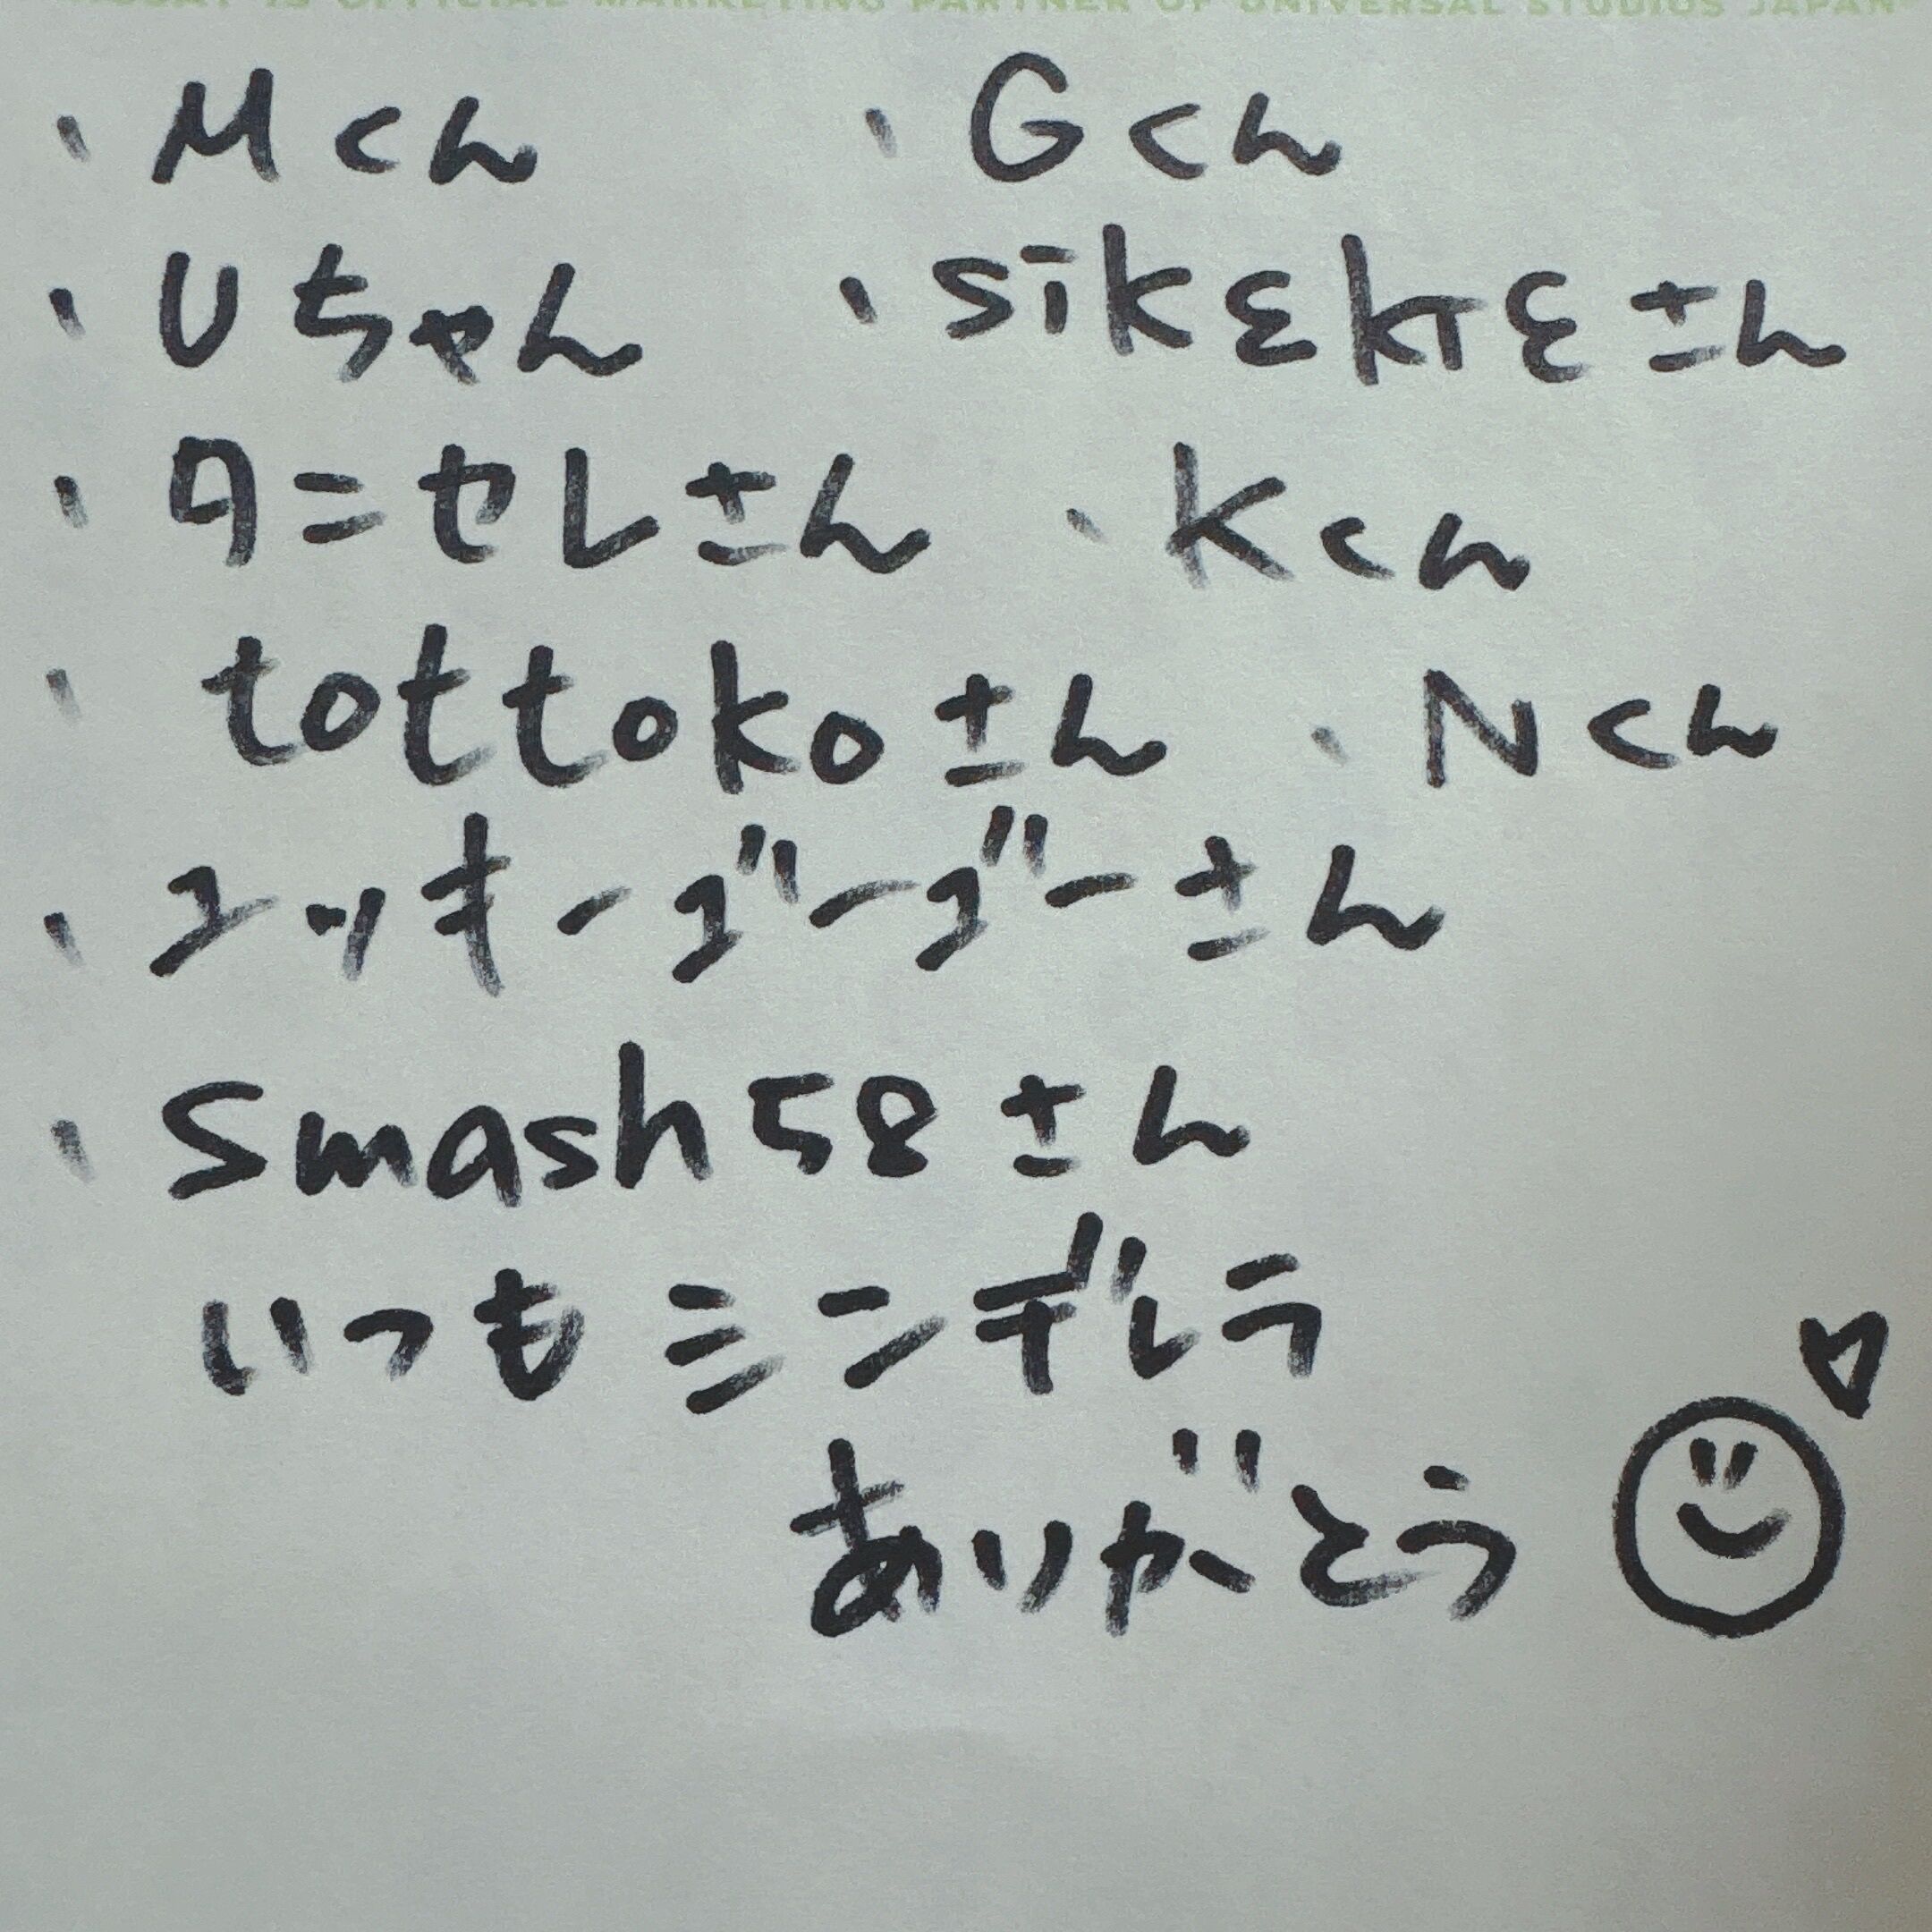 IS OFFICIAL MARKETING PARTNER OF UNIVERSAL STUDIOS JAPAN
、Mくん 、Gくん
、Uちゃん 、sikεkTεさん
、タニセレさん 、Kくん
、tottokoさん 、Nくん
、ユッキーゴーゴーさん
、Smash58さん
いつもミンデレラ
ありがとう